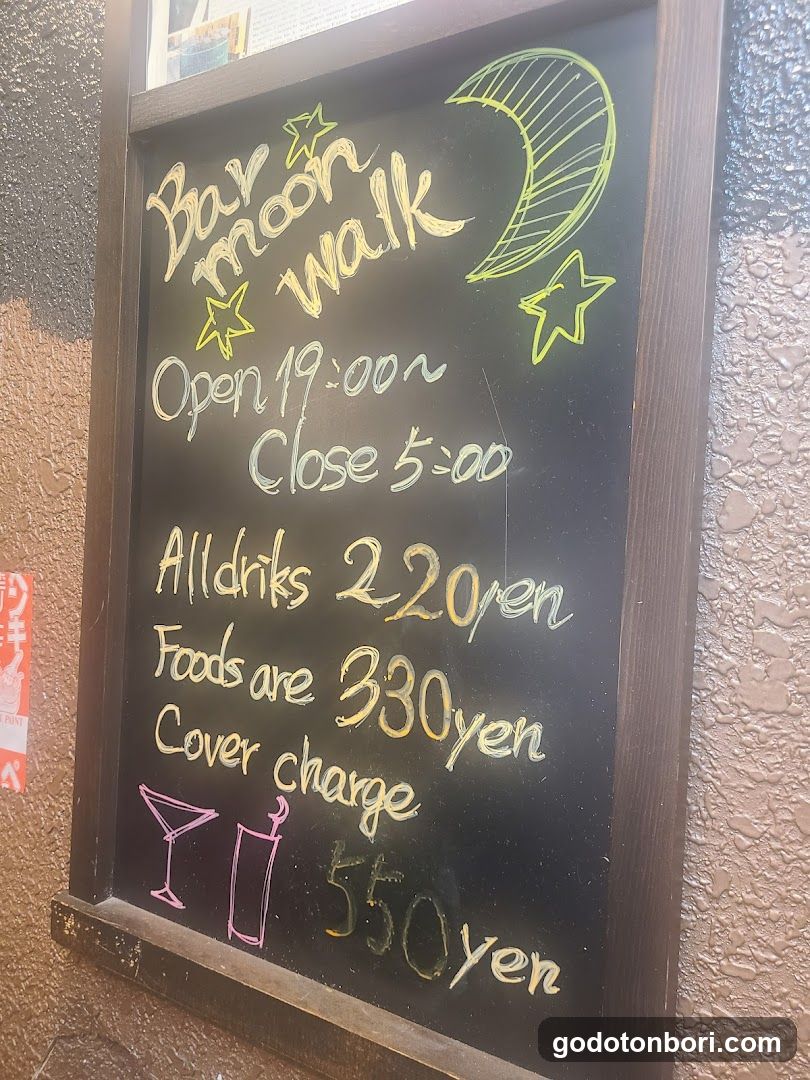 Bar
moon
walk
Open 19:00~
Close 5:00
All driks 220yen
Foods are 330yen
Cover charge
550 yen
godotonbori.com